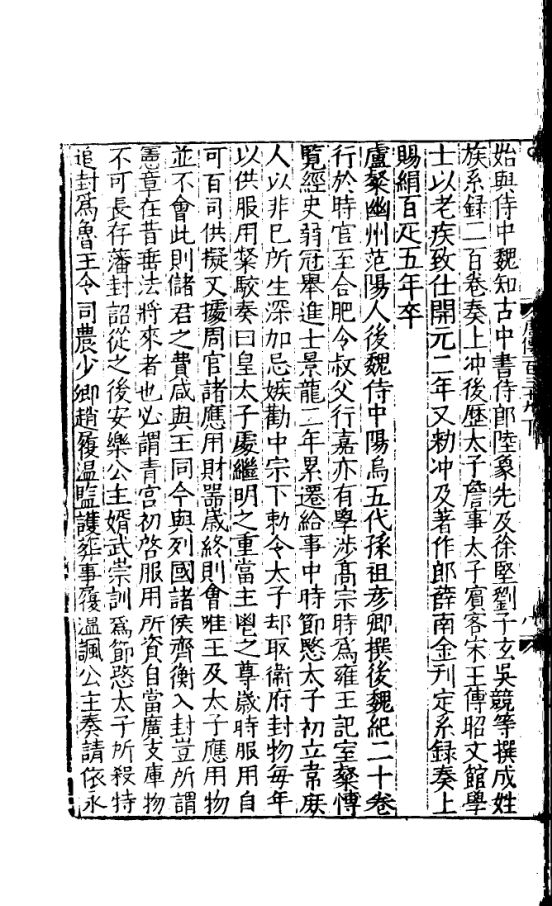 始與侍中魏知古中書侍郎陸象先及徐堅劉子玄吳競等撰成姓
族系録二百卷奏上冲後歷太子詹事太子賓客宋王傅昭文館學
士以老疾致仕開元二年又勑冲及著作郎薛南金刋定系録奏上
賜絹百疋五年卒
盧粲幽州范陽人後魏侍中陽烏五代孫祖彦卿撰後魏紀二十卷
行於時官至合肥令叔父行嘉亦有學涉髙宗時爲雍王記室粲博
覽經史弱冠舉進士景龍二年累遷給事中時節愍太子初立韋庶
人以非巳所生深加忌嫉勸中宗下勑令太子却取衛府封物每年
以供服用粲駮奏曰皇太子處繼明之重當主鬯之尊歲時服用自
可百司供擬又據周官諸應用財器歲終則會唯王及太子應用物
並不會此則儲君之費咸與王同今與列國諸侯齊衡入封豈所謂
憲章在昔垂法將來者也必謂青宮初啓服用所資自當廣支庫物
不可長存藩封詔從之後安樂公主婿武崇訓爲節愍太子所殺特
追封爲魯王令司農少卿趙履温監護葬事履温諷公主奏請依永